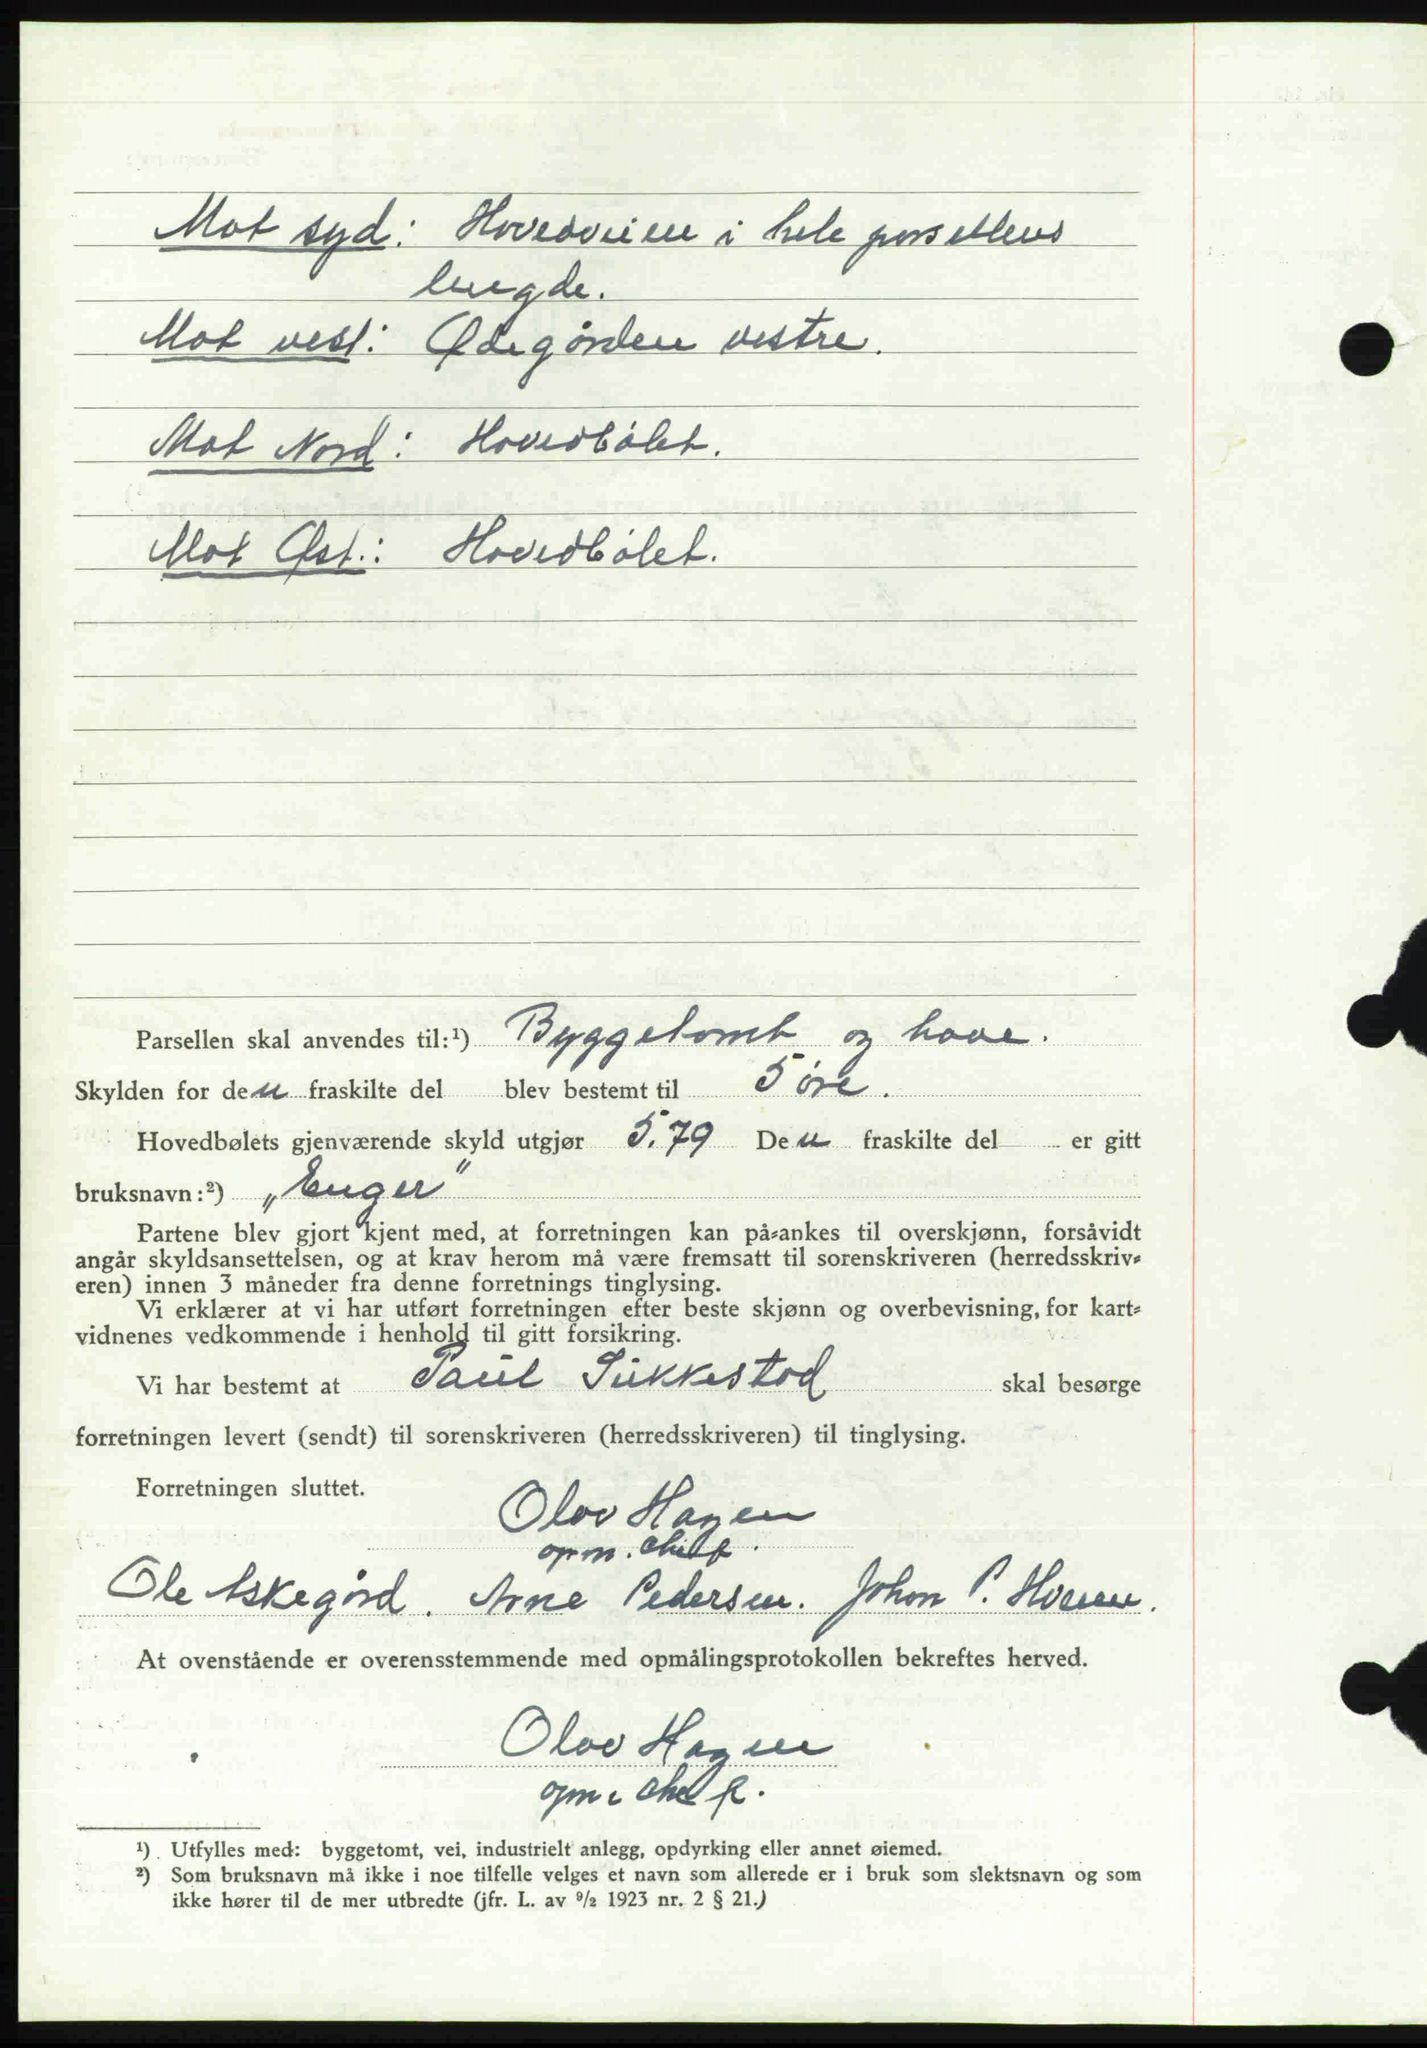 Mot syd: Hovedveien i hele parsellens
lengde.
Mot vest: Ødegården vestre.
Mot Nord: Hovedbølet.
Mot Øst.: Hovedbølet.
Parsellen skal anvendes til:¹) Byggetomt og have.
Skylden for den fraskilte del blev bestemt til 5 øre.
Hovedbølets gjenværende skyld utgjør 5.79 Den fraskilte del er gitt
bruksnavn:²) „Enger"
Partene blev gjort kjent med, at forretningen kan på-ankes til overskjønn, forsåvidt
angår skyldsansettelsen, og at krav herom må være fremsatt til sorenskriveren (herredsskriv-
eren) innen 3 måneder fra denne forretnings tinglysing.
Vi erklærer at vi har utført forretningen efter beste skjønn og overbevisning, for kart-
vidnenes vedkommende i henhold til gitt forsikring.
Vi har bestemt at Paul Sukkestad skal besørge
forretningen levert (sendt) til sorenskriveren (herredsskriveren) til tinglysing.
Forretningen sluttet.
Olav Hagen
opm. chef.
Ole Askegård. Arne Pedersen. Johan P.
At ovenstående er overensstemmende med opmålingsprotokollen bekreftes herved.
Olav Hagen
opm. chef.
¹) Utfylles med: byggetomt, vei, industrielt anlegg, opdyrking eller annet øiemed.
²) Som bruksnavn må ikke i noe tilfelle velges et navn som allerede er i bruk som slektsnavn og som
ikke hører til de mer utbredte (jfr. L. av 9/2 1923 nr. 2 § 21.)